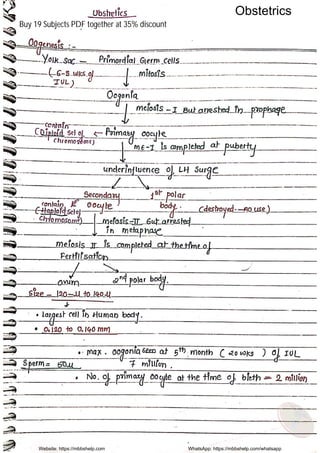 Obstetrics
Obstetrics
Buy 19 Subjects PDF together at 35% discount
Oogenesis :-
Yolk Sac — Primordial Germ cells
(5-8 wks of IUL)
mitosis
Oogonia
meiosis - I But arrested in prophase
(contain Diploid set of chromosome) ← Primary oocyte
ME-I is completed at puberty
underinfluence of LH Surge
Secondary oocyte
1st polar body.
(contain Haploid set of chromosome)
(destroyed - no use)
meiosis-II But arrested in metaphase
meiosis II is completed at the time of Fertilisation
ovum
2nd polar body.
Size - 120-μ to 140μ
• largest cell in Human body.
• 0.120 to 0.140 mm
• max. oogonia seen at 5th month (20 wks) of IUL
7 million.
Sperm = 50μ
• No. of primary oocyte at the time of birth = 2 million
Website: https://mbbshelp.com
WhatsApp: https://mbbshelp.com/whatsapp